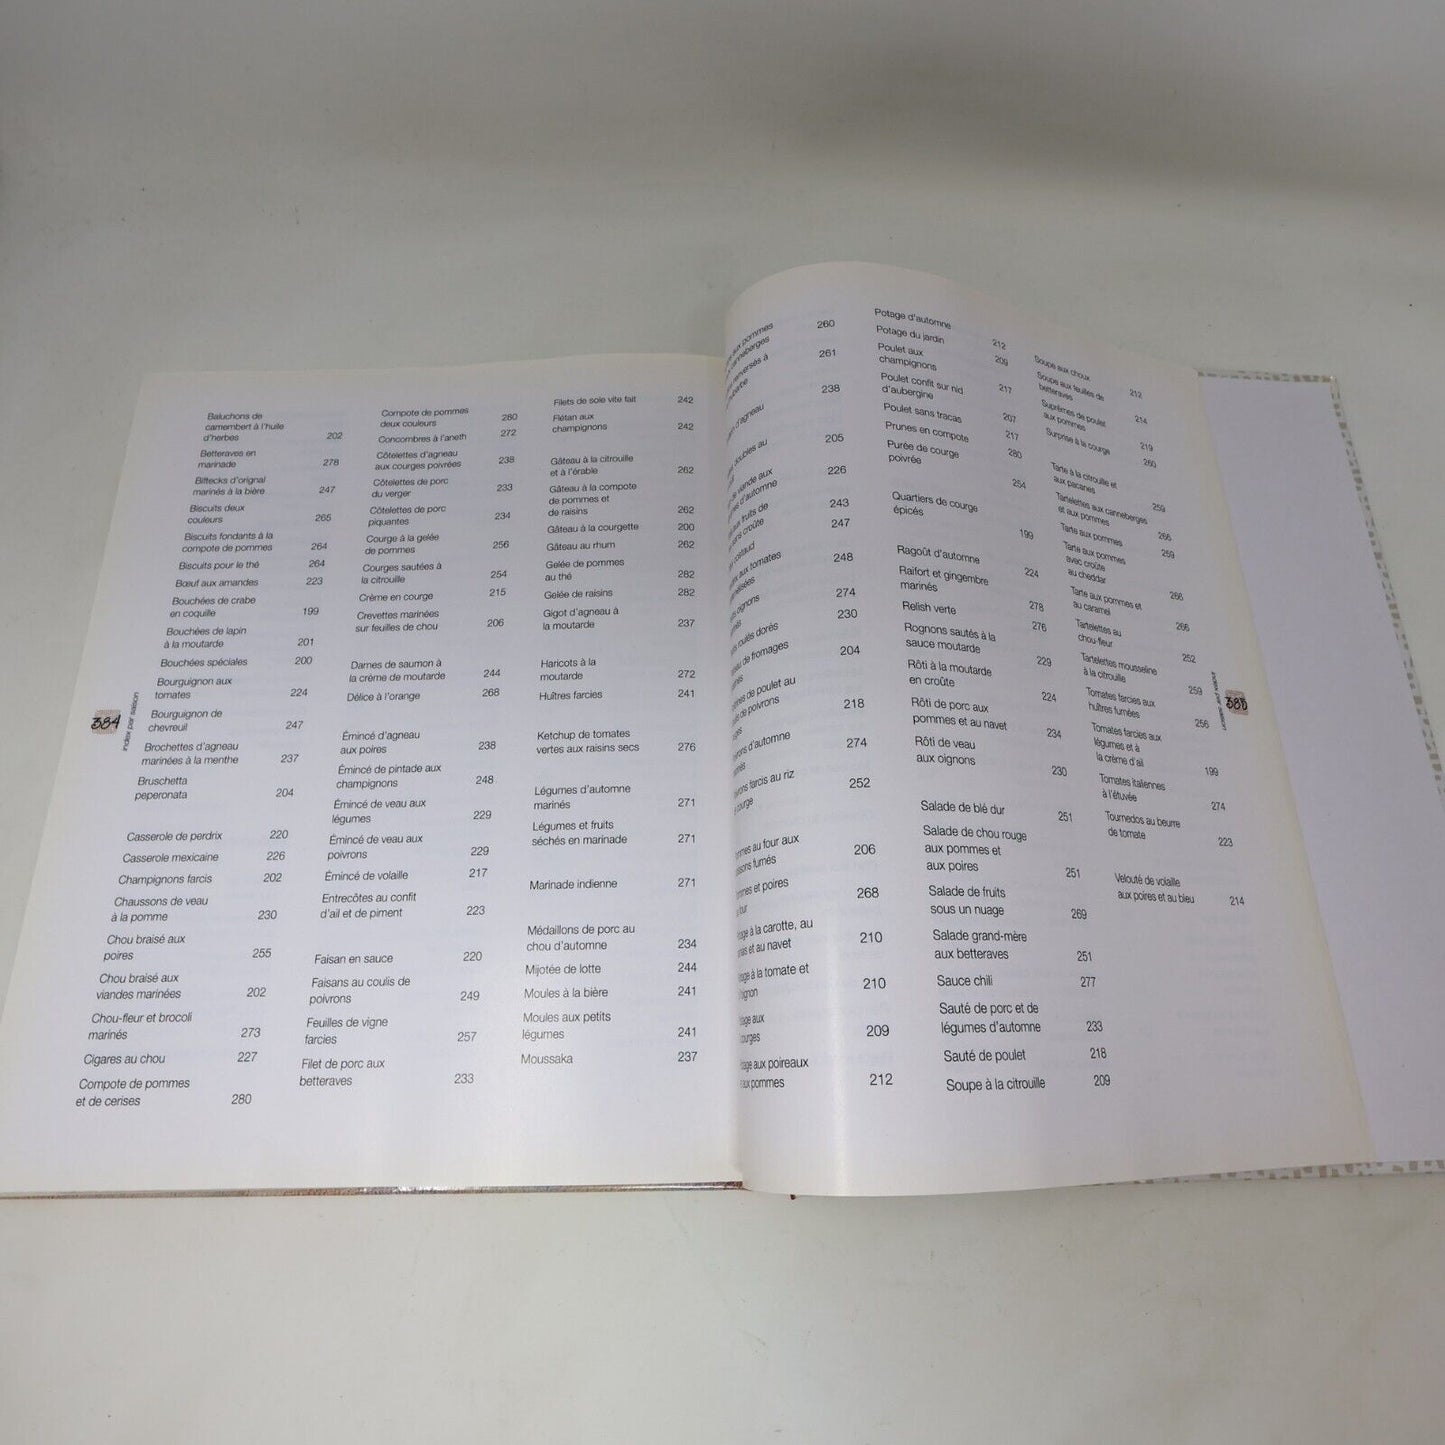 Baluchons de
camembert à l'huile
d'herbes 202
Betteraves en
marinade 278
Biftecks d'orignal
marinés à la bière 247
Biscuits deux
couleurs 265
Biscuits fondants à la
compote de pommes 264
Biscuits pour le thé 264
Bœuf aux amandes 223
Bouchées de crabe
en coquille 199
Bouchées de lapin
à la moutarde 201
Bouchées spéciales 200
Bourguignon aux
tomates 224
Bourguignon de
chevreuil 247
Brochettes d'agneau
marinées à la menthe 237
Bruschetta
peperonata 204
Casserole de perdrix 220
Casserole mexicaine 226
Champignons farcis 202
Chaussons de veau
à la pomme 230
Chou braisé aux
poires 255
Chou braisé aux
viandes marinées 202
Chou-fleur et brocoli
marinés 273
Cigares au chou 227
Compote de pommes
et de cerises 280
384
Index par saison
Compote de pommes
deux couleurs 280
Concombres à l'aneth 272
Côtelettes d'agneau
aux courges poivrées 238
Côtelettes de porc
du verger 233
Côtelettes de porc
piquantes 234
Courge à la gelée
de pommes 256
Courges sautées à
la citrouille 254
Crème en courge 215
Crevettes marinées
sur feuilles de chou 206
Darnes de saumon à
la crème de moutarde 244
Délice à l'orange 268
Émincé d'agneau
aux poires 238
Émincé de pintade aux
champignons 248
Émincé de veau aux
légumes 229
Émincé de veau aux
poivrons 229
Émincé de volaille 217
Entrecôtes au confit
d'ail et de piment 223
Faisan en sauce 220
Faisans au coulis de
poivrons 249
Feuilles de vigne
farcies 257
Filet de porc aux
betteraves 233
Filets de sole vite fait 242
Flétan aux
champignons 242
Gâteau à la citrouille
et à l'érable 262
Gâteau à la compote
de pommes et
de raisins 262
Gâteau à la courgette 200
Gâteau au rhum 262
Gelée de pommes
au thé 282
Gelée de raisins 282
Gigot d'agneau à
la moutarde 237
Haricots à la
moutarde 272
Huîtres farcies 241
Ketchup de tomates
vertes aux raisins secs 276
Légumes d'automne
marinés 271
Légumes et fruits
séchés en marinade 271
Marinade indienne 271
Médaillons de porc au
chou d'automne 234
Mijotée de lotte 244
Moules à la bière 241
Moules aux petits
légumes 241
Moussaka 237
aux pommes
canneberges 260
renversés à 261
d'agneau 238
doubles au 205
de viande aux
d'automne 226
aux fruits de
croûte 243
247
aux tomates 248
oignons 274
roulés dorés 230
de fromages 204
de poulet au
de poivrons 218
d'automne 274
farcis au riz
courge 252
au four aux
fumés 206
et poires
four 268
à la carotte, au
et au navet 210
à la tomate et
oignon 210
aux
courges 209
aux poireaux
aux pommes 212
Potage d'automne 212
Potage du jardin 209
Poulet aux
champignons 217
Poulet confit sur nid
d'aubergine 207
Poulet sans tracas 217
Prunes en compote 280
Purée de courge
poivrée 254
Quartiers de courge
épicés 199
Ragoût d'automne 224
Raifort et gingembre
marinés 278
Relish verte 276
Rognons sautés à la
sauce moutarde 229
Rôti à la moutarde
en croûte 224
Rôti de porc aux
pommes et au navet 234
Rôti de veau
aux oignons 230
Salade de blé dur 251
Salade de chou rouge
aux pommes et
aux poires 251
Salade de fruits
sous un nuage 269
Salade grand-mère
aux betteraves 251
Sauce chili 277
Sauté de porc et de
légumes d'automne 233
Sauté de poulet 218
Soupe à la citrouille 209
Soupe aux choux 212
Soupe aux feuilles de
betteraves 214
Suprêmes de poulet
aux pommes 219
Surprise à la courge 260
Tarte à la citrouille et
aux pacanes 259
Tartelettes aux canneberges
et aux pommes 266
Tarte aux pommes 259
Tarte aux pommes
avec croûte
au cheddar 266
Tarte aux pommes et
au caramel 266
Tartelettes au
chou-fleur 252
Tartelettes mousseline
à la citrouille 259
Tomates farcies aux
huîtres fumées 256
Tomates farcies aux
légumes et à
la crème d'ail 199
Tomates italiennes
à l'étuvée 274
Tournedos au beurre
de tomate 223
Velouté de volaille
aux poires et au bleu 214
385